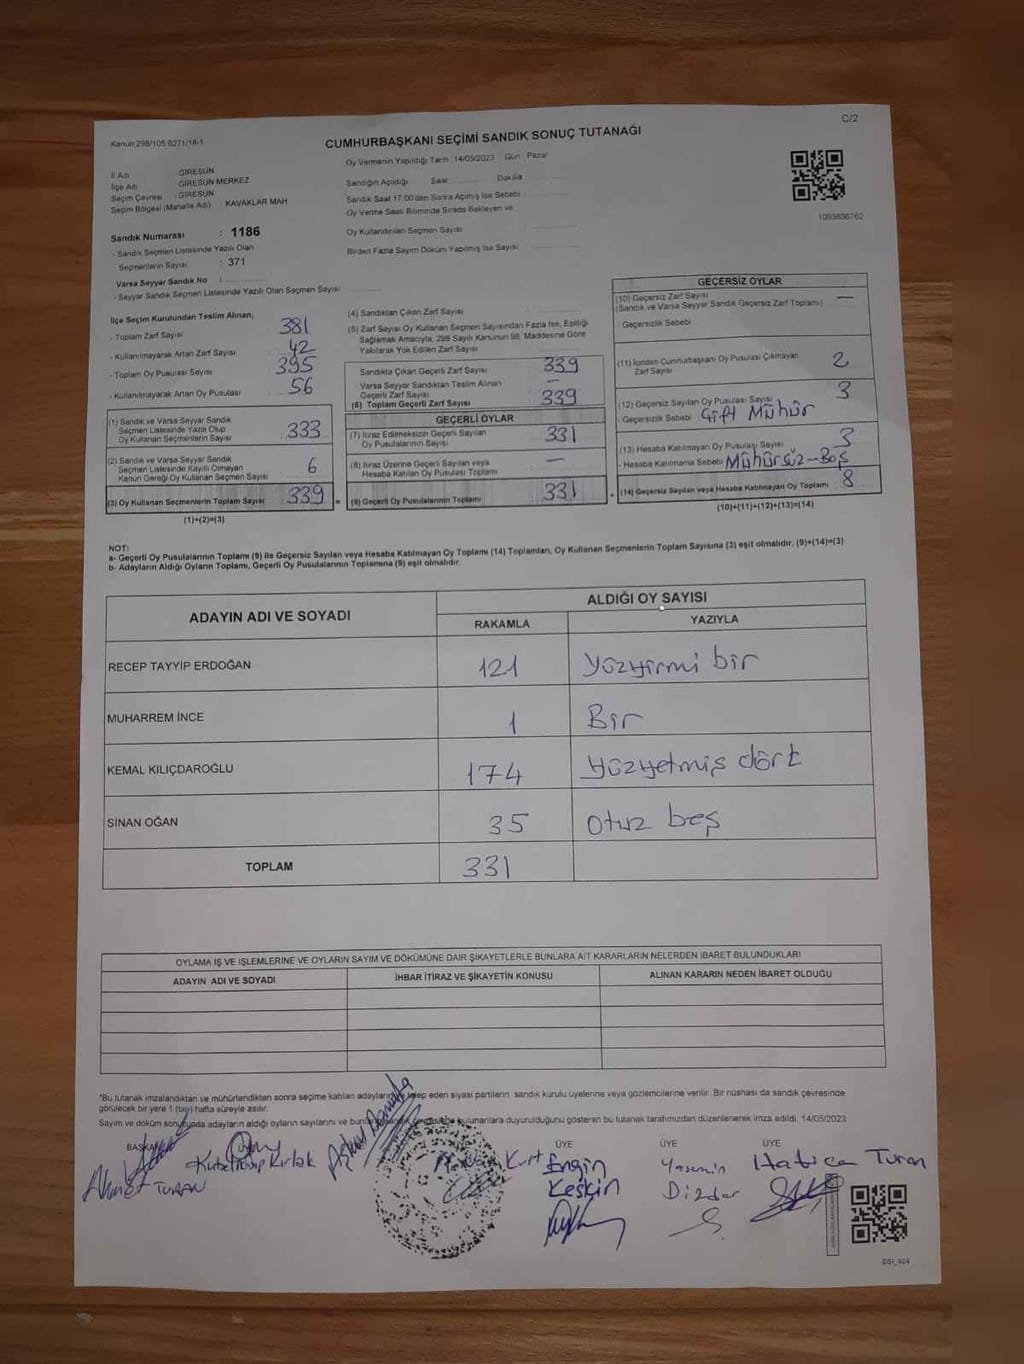 Kanun 298/105.6271/18-1
C/2
CUMHURBAŞKANI SEÇİMİ SANDIK SONUÇ TUTANAĞI
İl Adı GİRESUN
İlçe Adı GİRESUN MERKEZ
Seçim Çevresi : GİRESUN
Seçim Bölgesi (Mahalle Adı) KAVAKLAR MAH
Sandık Numarası : 1186
- Sandık Seçmen Listesinde Yazılı Olan
Seçmenlerin Sayısı : 371
Varsa Seyyar Sandık No :
- Seyyar Sandık Seçmen Listesinde Yazılı Olan Seçmen Sayısı
Oy Vermenin Yapıldığı Tarih 14/05/2023 Gün : Pazar
Sandığın Açıldığı Saat Dakika
Sandık Saat 17:00'dan Sonra Açılmış İse Sebebi
Oy Verme Saati Bitiminde Sırada Bekleyen ve
Oy Kullandırılan Seçmen Sayısı
Birden Fazla Sayım Döküm Yapılmış İse Sayısı
1093636762
İlçe Seçim Kurulundan Teslim Alınan;
- Toplam Zarf Sayısı 381
- Kullanılmayarak Artan Zarf Sayısı 42
- Toplam Oy Pusulası Sayısı 395
- Kullanılmayarak Artan Oy Pusulası 56
(1) Sandık ve Varsa Seyyar Sandık
Seçmen Listesinde Yazılı Olup
Oy Kullanan Seçmenlerin Sayısı 333
(2) Sandık ve Varsa Seyyar Sandık
Seçmen Listesinde Kayıtlı Olmayan
Kanun Gereği Oy Kullanan Seçmen Sayısı 6
(3) Oy Kullanan Seçmenlerin Toplam Sayısı 339 =
(1)+(2)=(3)
(4) Sandıktan Çıkan Zarf Sayısı
(5) Zarf Sayısı Oy Kullanan Seçmen Sayısından Fazla İse, Eşitliği
Sağlamak Amacıyla, 298 Sayılı Kanunun 98. Maddesine Göre
Yakılarak Yok Edilen Zarf Sayısı
Sandıkta Çıkan Geçerli Zarf Sayısı 339
Varsa Seyyar Sandıktan Teslim Alınan
Geçerli Zarf Sayısı —
(6) Toplam Geçerli Zarf Sayısı 339
GEÇERLİ OYLAR
(7) İtiraz Edilmeksizin Geçerli Sayılan
Oy Pusulalarının Sayısı 331
(8) İtiraz Üzerine Geçerli Sayılan veya
Hesaba Katılan Oy Pusulası Toplamı —
(9) Geçerli Oy Pusulalarının Toplamı 331 +
GEÇERSİZ OYLAR
(10) Geçersiz Zarf Sayısı
(Sandık ve Varsa Seyyar Sandık Geçersiz Zarf Toplamı) —
- Geçersizlik Sebebi
(11) İçinden Cumhurbaşkanı Oy Pusulası Çıkmayan
Zarf Sayısı 2
(12) Geçersiz Sayılan Oy Pusulası Sayısı 3
- Geçersizlik Sebebi Çift Mühür
(13) Hesaba Katılmayan Oy Pusulası Sayısı 3
- Hesaba Katılmama Sebebi Mühürsüz-Boş
(14) Geçersiz Sayılan veya Hesaba Katılmayan Oy Toplamı 8
(10)+(11)+(12)+(13)=(14)
NOT:
a- Geçerli Oy Pusulalarının Toplamı (9) ile Geçersiz Sayılan veya Hesaba Katılmayan Oy Toplamı (14) Toplamları, Oy Kullanan Seçmenlerin Toplam Sayısına (3) eşit olmalıdır. (9)+(14)=(3)
b- Adayların Aldığı Oyların Toplamı, Geçerli Oy Pusulalarının Toplamına (9) eşit olmalıdır.
ADAYIN ADI VE SOYADI
ALDIĞI OY SAYISI
RAKAMLA YAZIYLA
RECEP TAYYİP ERDOĞAN 121 Yüzyirmi bir
MUHARREM İNCE 1 Bir
KEMAL KILIÇDAROĞLU 174 Yüzyetmiş dört
SİNAN OĞAN 35 Otuz beş
TOPLAM 331
OYLAMA İŞ VE İŞLEMLERİNE VE OYLARIN SAYIM VE DÖKÜMÜNE DAİR ŞİKAYETLERLE BUNLARA AİT KARARLARIN NELERDEN İBARET BULUNDUKLARI
ADAYIN ADI VE SOYADI İHBAR İTİRAZ VE ŞİKAYETİN KONUSU ALINAN KARARIN NEDEN İBARET OLDUĞU
*Bu tutanak imzalandıktan ve mühürlendikten sonra seçime katılan adayların talep eden siyasi partilerin sandık kurulu üyelerine veya gözlemcilerine verilir. Bir nüshası da sandık çevresinde
görülecek bir yere 1 (bir) hafta süreyle asılır.
Sayım ve döküm sonucunda adayların aldığı oyların sayılarını ve bunların bulunanlara duyurulduğunu gösteren bu tutanak tarafımızdan düzenlenerek imza edildi. 14/05/2023
BAŞKAN ÜYE ÜYE ÜYE ÜYE
Ahmet TURAN
Kurt
Engin
Keskin
Yasemin
Dizdar
Hatice Turan
SSİ_404